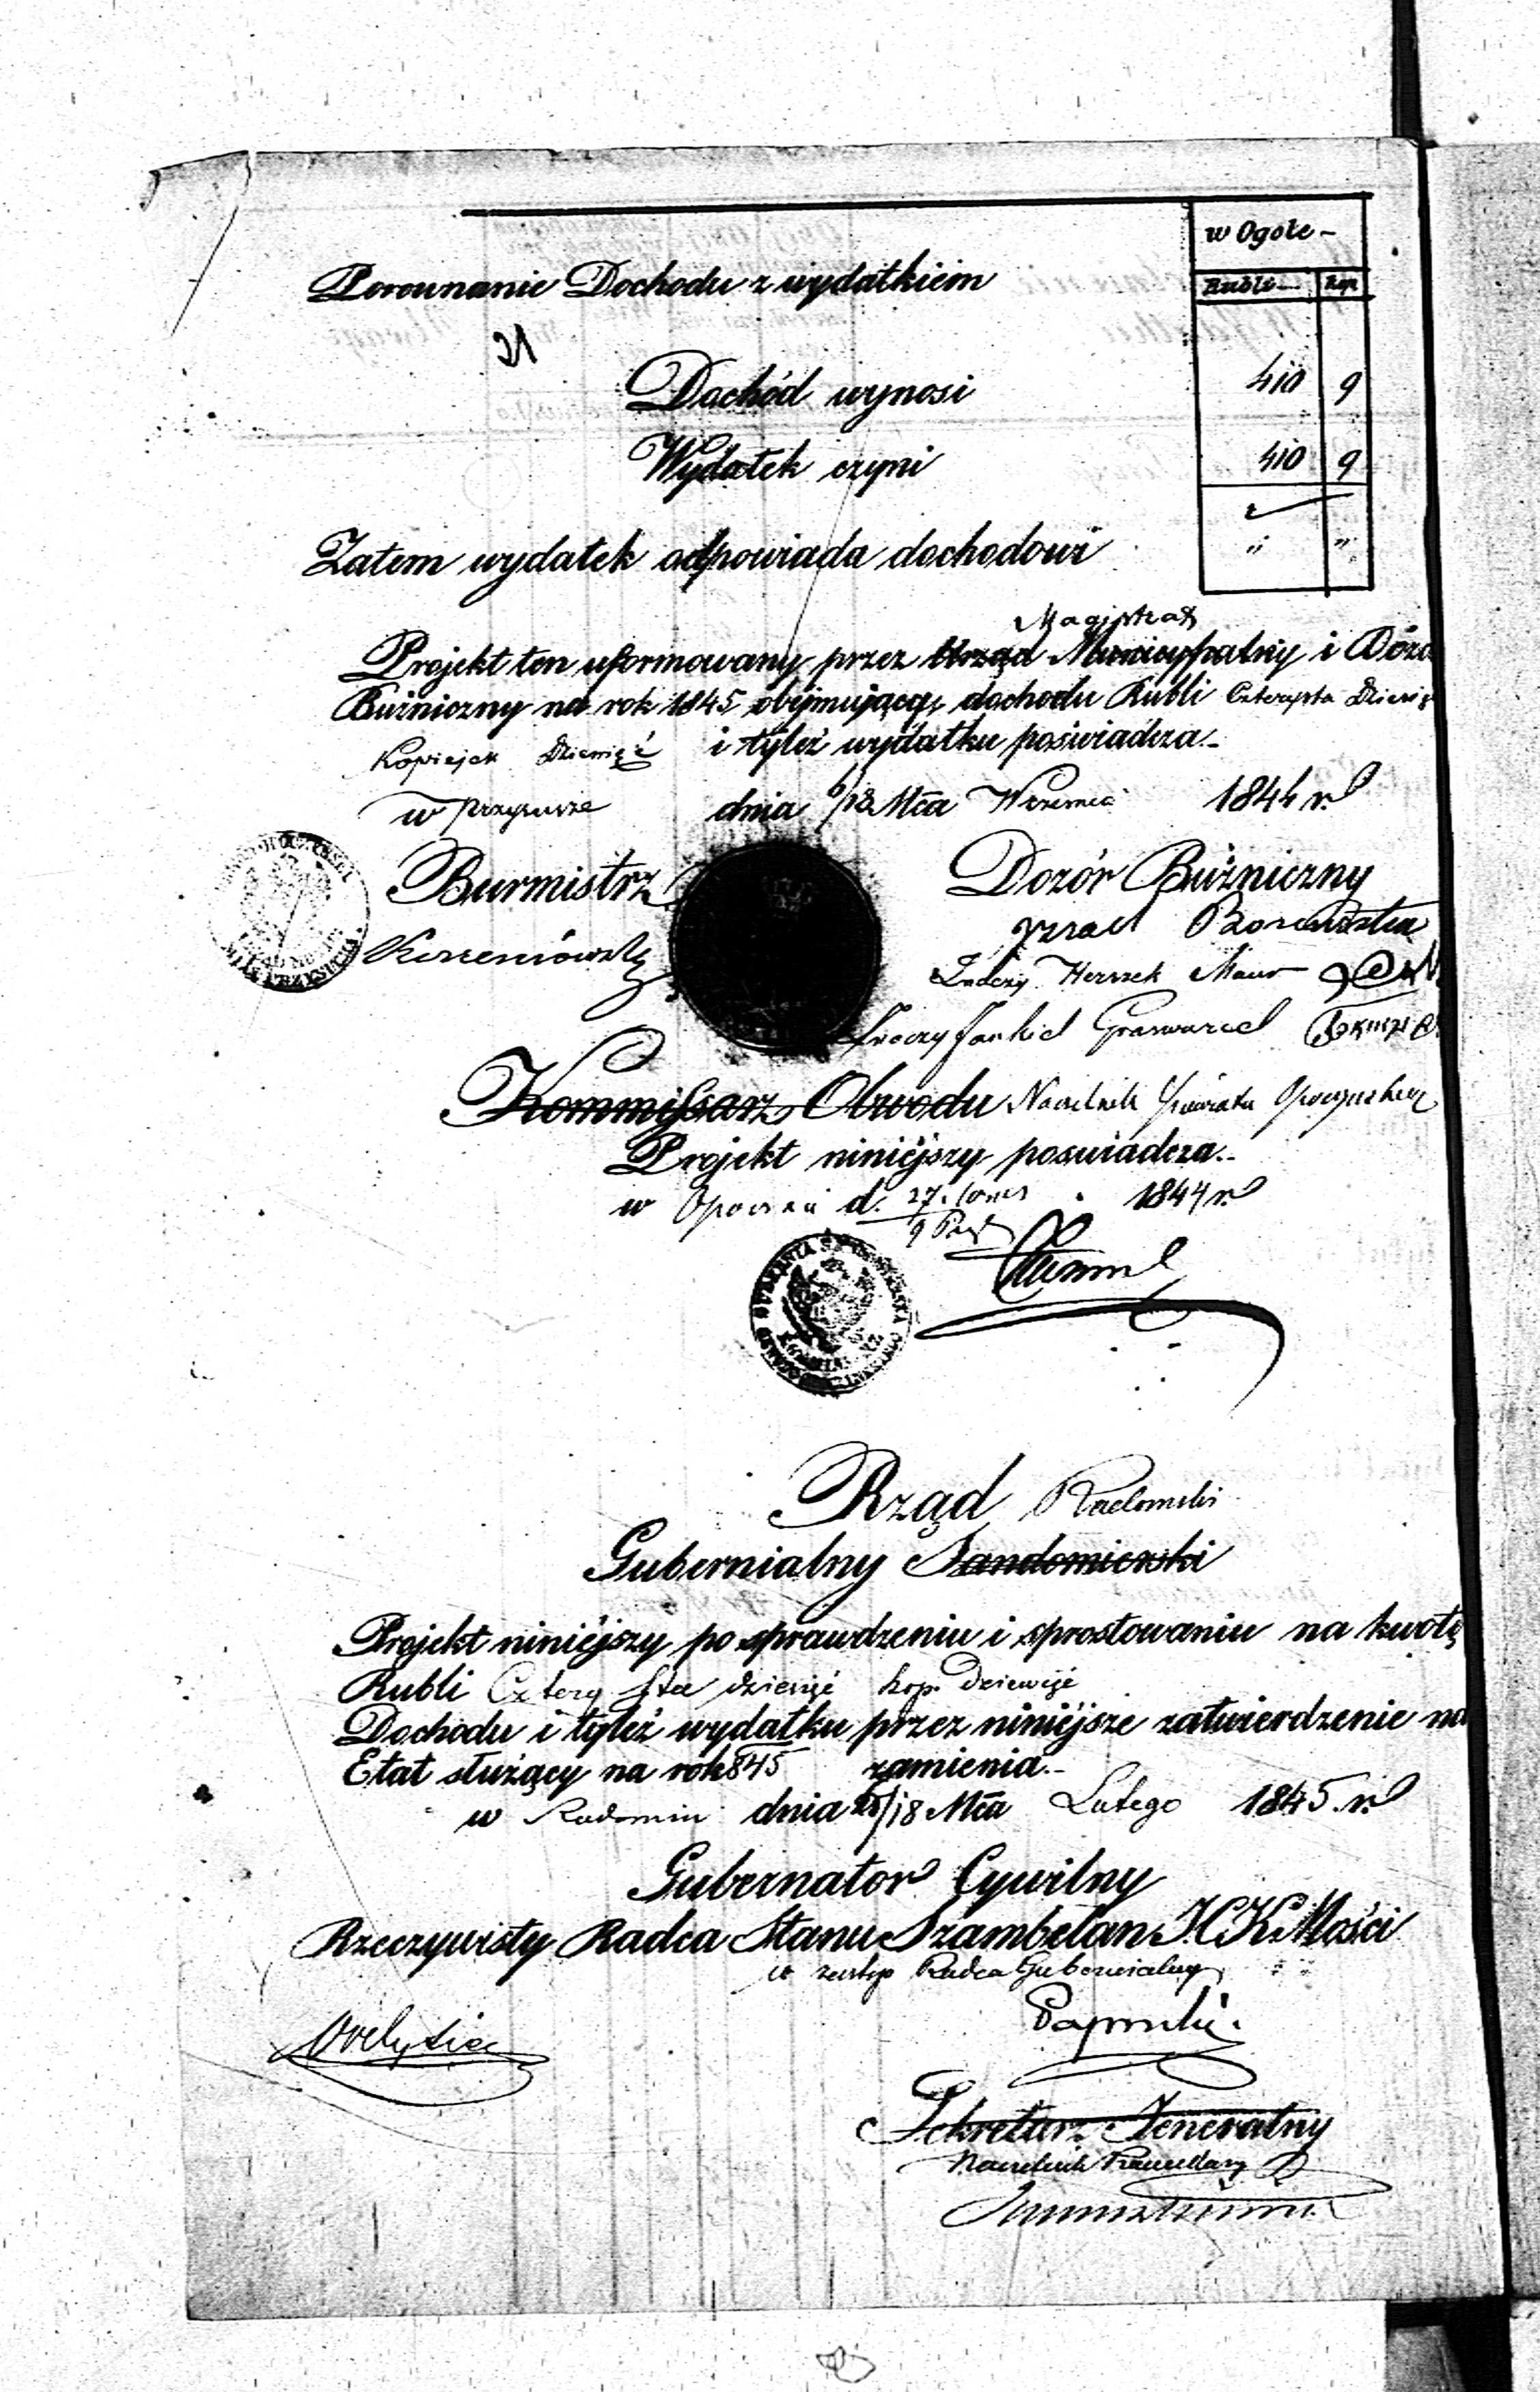 w Ogole -
Porownanie Dochodu z wydatkiem
Ruble Kop
Dochód wynosi 410 9
Wydatek czyni 410 9
Zatem wydatek odpowiada dochodowi " "
Magistrat
Projekt ten uformowany przez Urząd Municypalny i Dozó
Bużniczny na rok 1845 obejmujący dochodu Rubli Czterysta Dziesięć
Kopiejek Dziewięć i tyleż wydatku poświadcza.-
w dnia 6/18 Mca 1844 r.
Burmistrz Dozór Bużniczny
Izrael
Herszek
Kommissarz Obwodu Naczelnik Powiatu Opoczyńskiego
Projekt niniejszy poswiadcza.-
w Opocznie d. 27. 1844 r.
9
Rząd Radomski
Gubernialny Sandomierski
Projekt niniejszy po sprawdzeniu i sprostowaniu na kwotę
Rubli Cztery sta dziesięć kop. Dziewięć
Dochodu i tyleż wydatku przez niniejsze zatwierdzenie na
Etat służący na rok 845 zamienia.-
w Radomiu dnia /18 Mca Lutego 1845 r.
Gubernator Cywilny
Rzeczywisty Radca Stanu Szambelan J.C.K. Mości
w zastęp Radca Gubernialny
Sekretarz Jeneralny
Naczelnik Kancellary